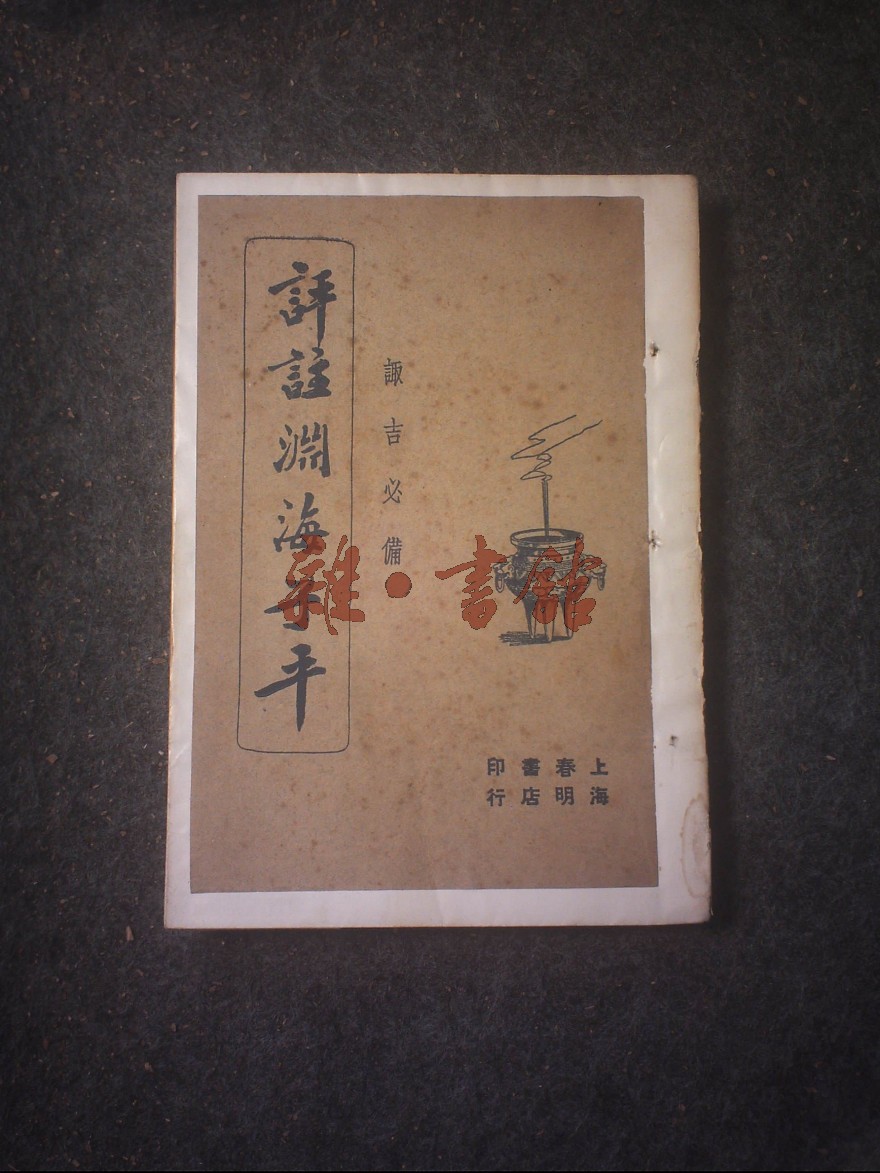 諏吉必備
評註淵海子平
上海
春明
書店
印行
雜·書館